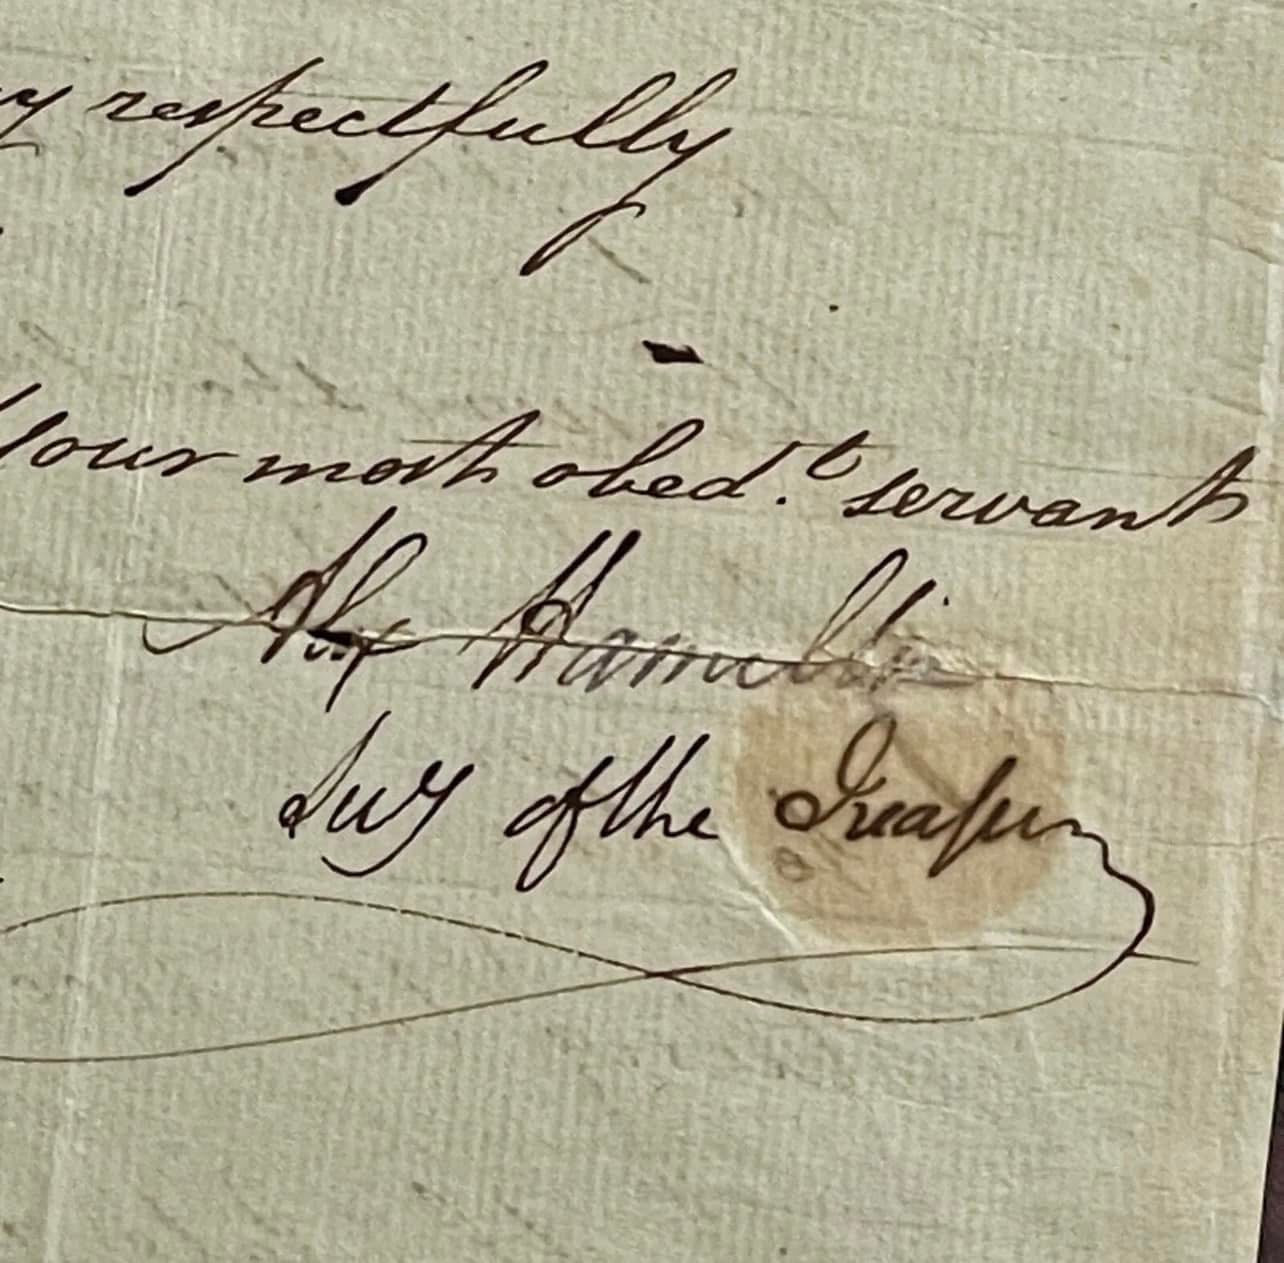 respectfully
Your most obed.t servant
Alex Hamilton
Secy of the Treasury